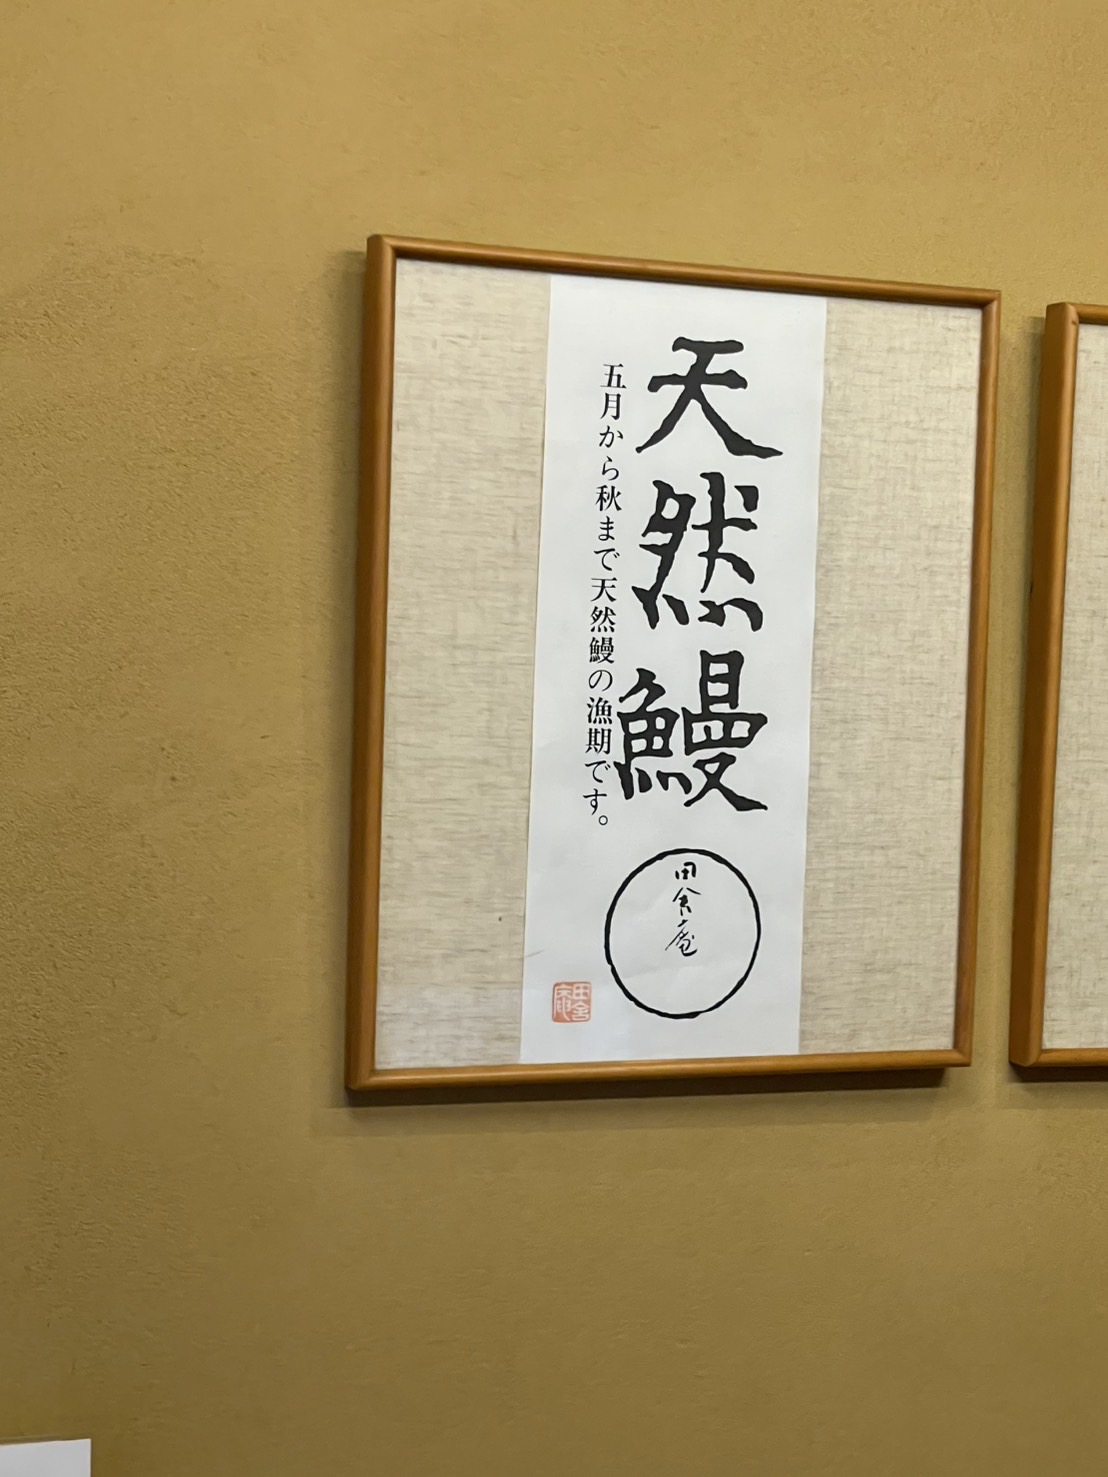 天然鰻
五月から秋まで天然鰻の漁期です。
田舎庵
田舎庵